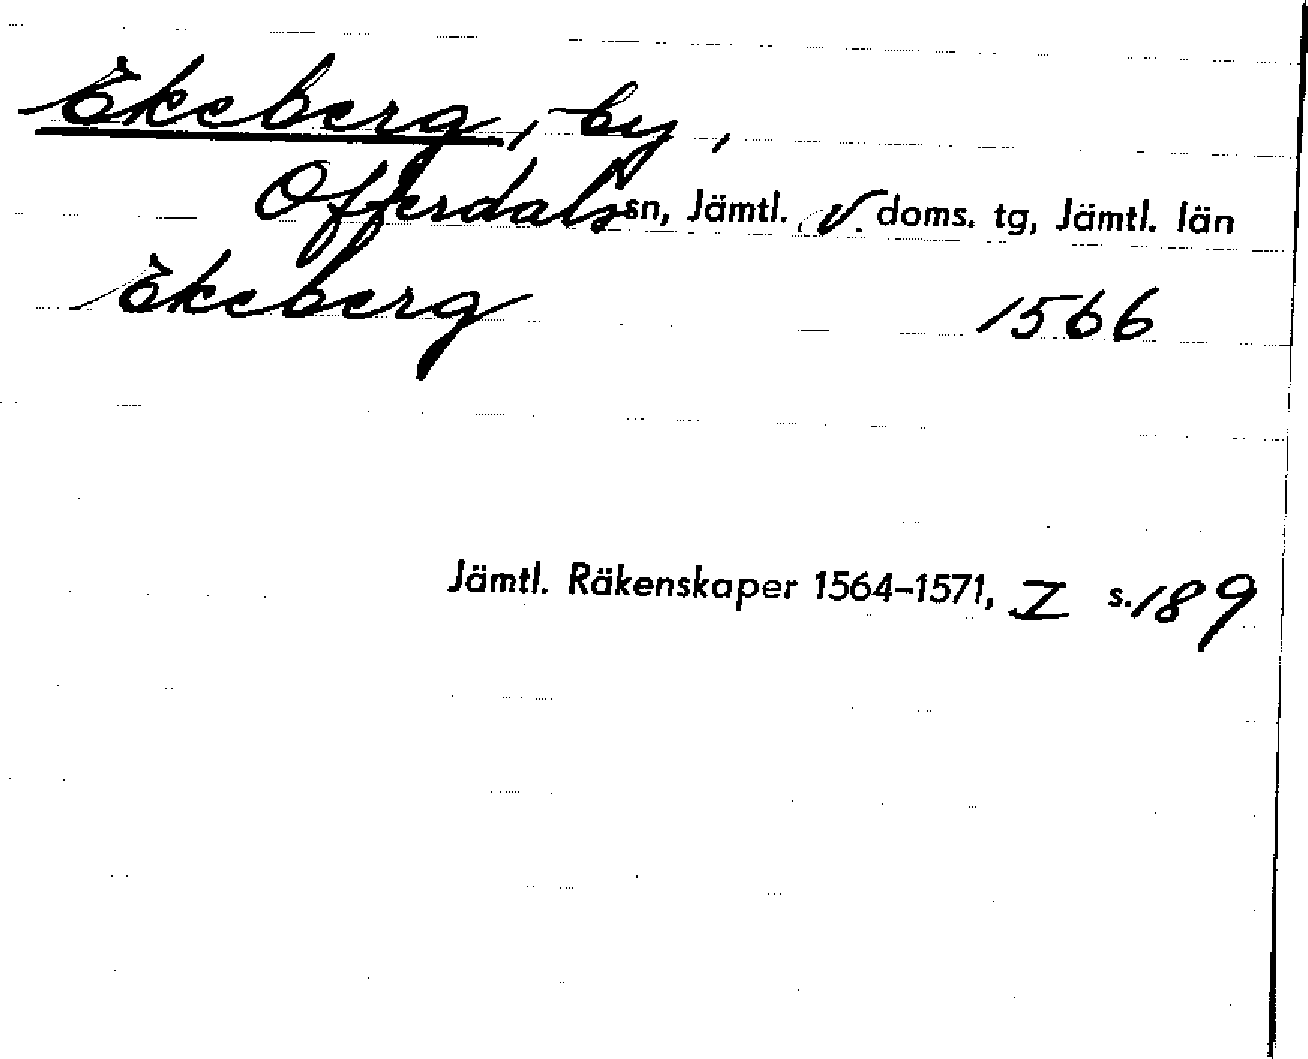 Ekeberg, by,
Offerdals sn, Jämtl. v. doms. tg, Jämtl. län
Ekeberg 1566
Jämtl. Räkenskaper 1564-1571, I s. 189